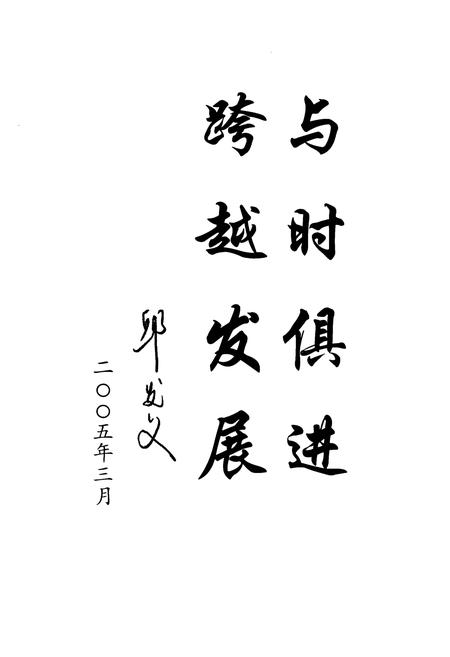 与时俱进
跨越发展
二〇〇五年三月